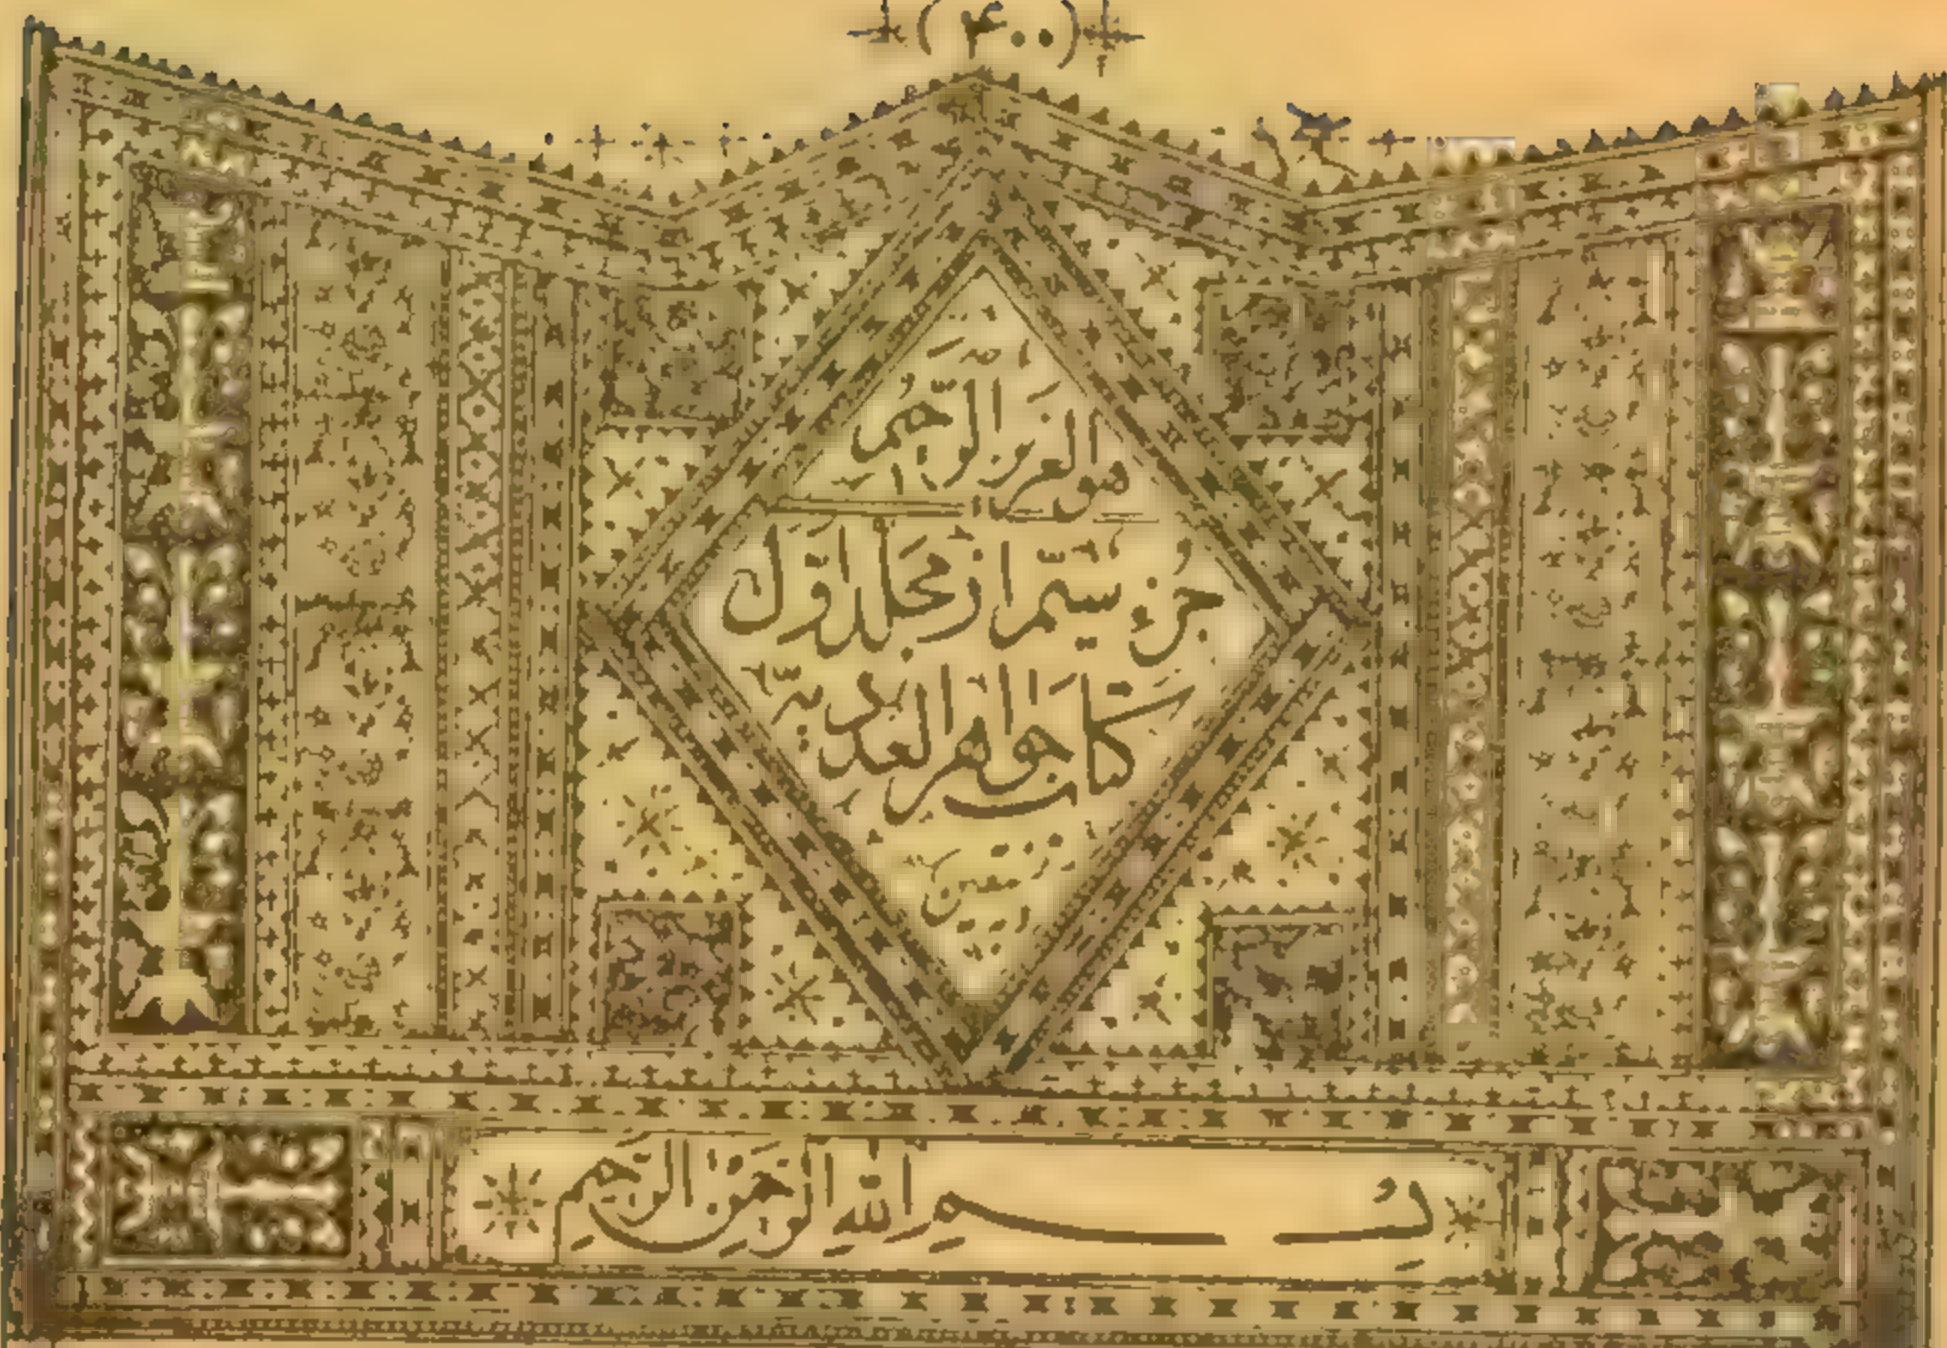 (۴۰۰)
هو العزیز الرّحیم
جزء سیّم از مجلد اوّل
کتاب جواهر العددیّه
بسم الله الرّحمن الرّحیم